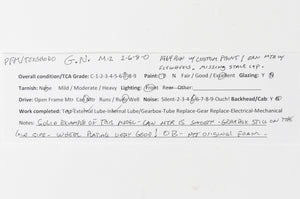 PFM/TENSHODO G.N. M-2 2-6-8-0 FACTORY W/CUSTOM PAINT / CAN MTR W/
FLYWHEEL. MISSING STACK CAP.
Overall condition/TCA Grade: C-1-2-3-4-5-6-7-8-9 Paint: F P N Fair / Good / Excellent Glazing: Y N
Tarnish: None Mild / Moderate / Heavy Lighting: Front Rear Other:
Drive: Open Frame Mtr Can Mtr Runs / Runs Well Noise: Silent-2-3-4-5-6-7-8-9-Ouch! Backhead/Cab: Y N
Work Needed: None External Lube/Internal Lube/Gearbox-Tube Replace-Gear Replace Electrical-Mechanical
Notes: SOLID EXAMPLE OF THIS MODEL - CAN MTR IS SMOOTH - GEARBOX STILL ON THE
SIDE - WHEEL PLATING VERY GOOD! OB - NOT ORIGINAL FOAM.